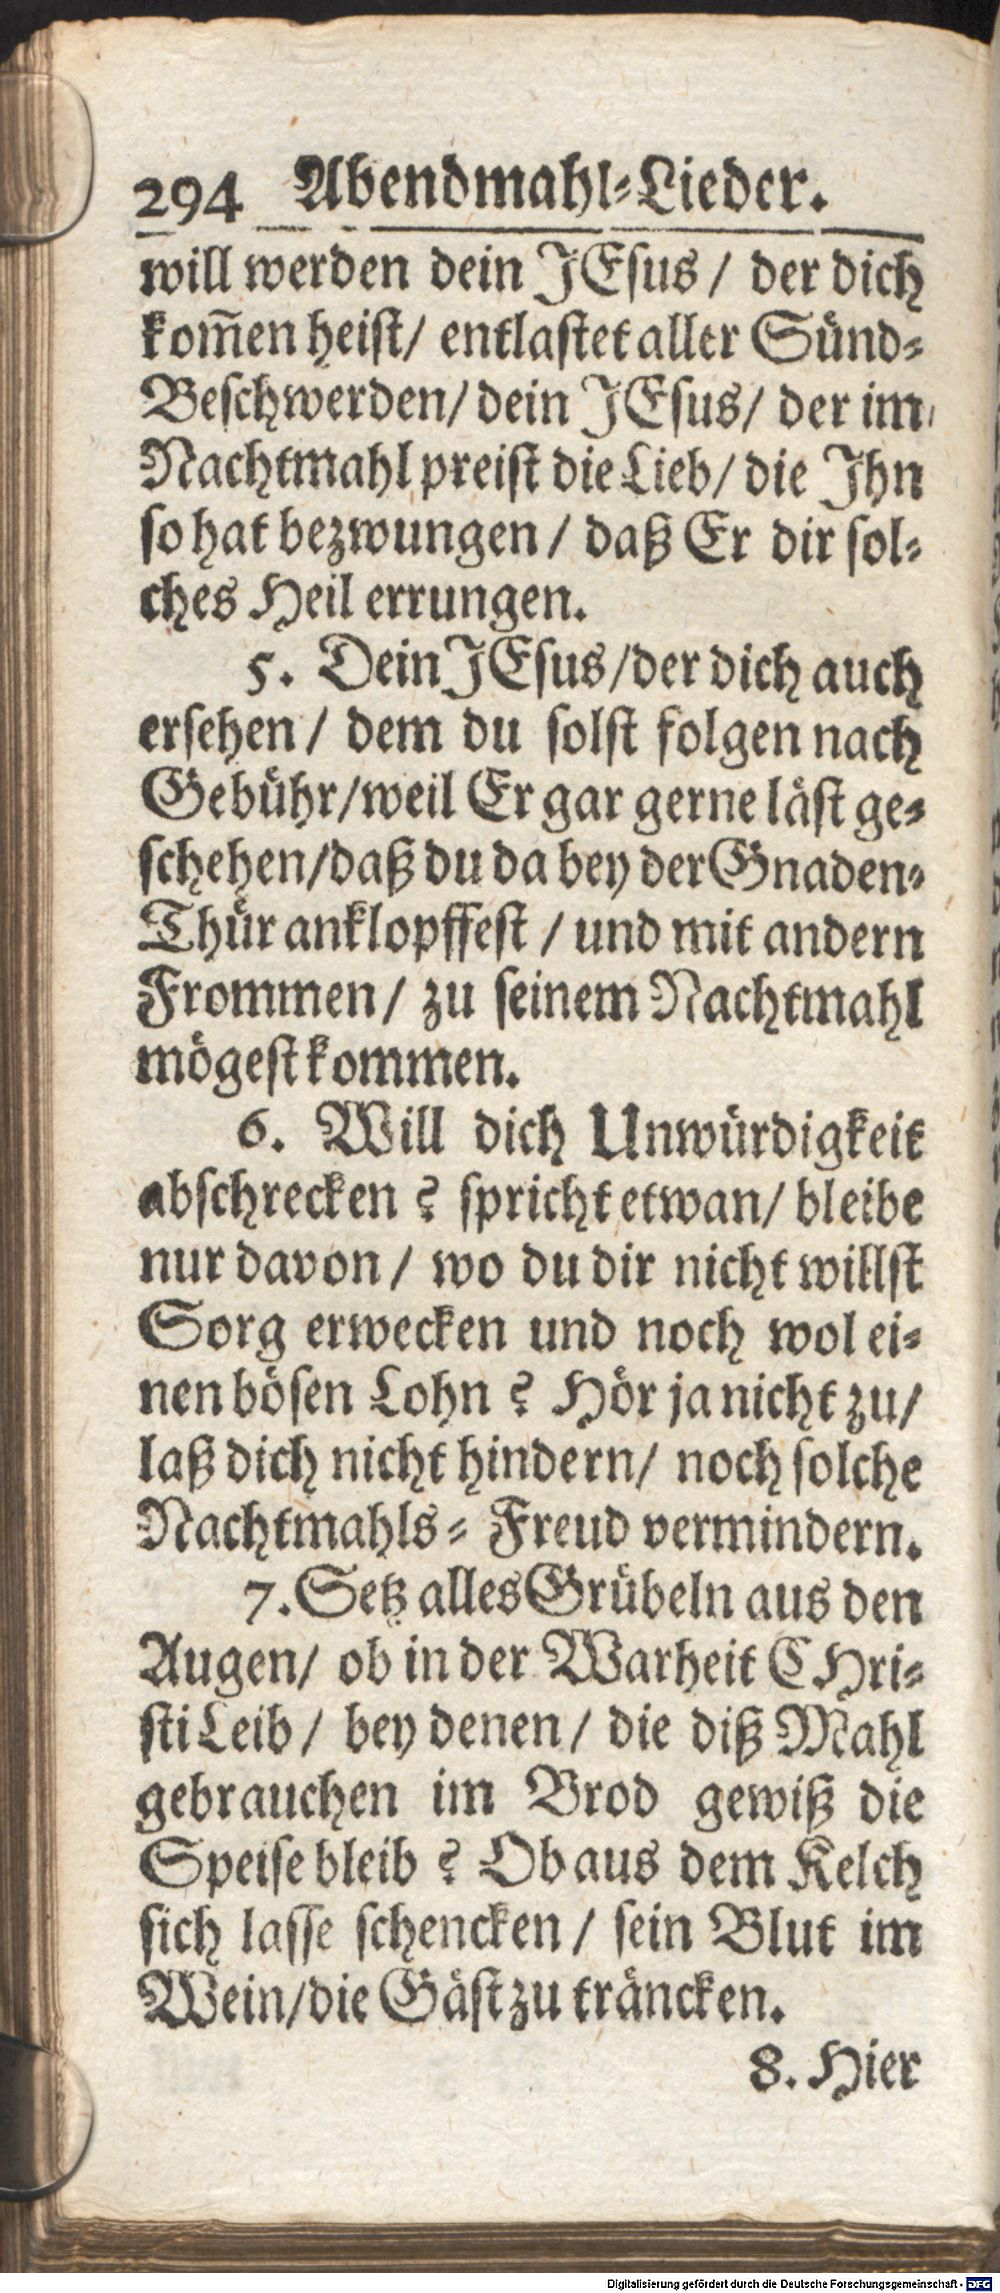 294 Abendmahl-Lieder.
will werden dein JEsus / der dich
kom̃en heist/ entlastet aller Sünd-
Beschwerden/ dein JEsus/ der im
Nachtmahl preist die Lieb/ die Ihn
so hat bezwungen / daß Er dir sol-
ches Heil errungen.
5. Dein JEsus/der dich auch
ersehen / dem du solst folgen nach
Gebühr/weil Er gar gerne läst ge-
schehen/daß du da bey der Gnaden-
Thür anklopffest / und mit andern
Frommen/ zu seinem Nachtmahl
mögest kommen.
6. Will dich Unwürdigkeit
abschrecken ? spricht etwan/ bleibe
nur davon / wo du dir nicht willst
Sorg erwecken und noch wol ei-
nen bösen Lohn ? Hör ja nicht zu/
laß dich nicht hindern/ noch solche
Nachtmahls- Freud vermindern.
7. Setz alles Grübeln aus den
Augen/ ob in der Warheit CHri-
sti Leib / bey denen / die diß Mahl
gebrauchen im Brod gewiß die
Speise bleib ? Ob aus dem Kelch
sich lasse schencken / sein Blut im
Wein/die Gäst zu träncken.
8. Hier
Digitalisierung gefördert durch die Deutsche Forschungsgemeinschaft - DFG